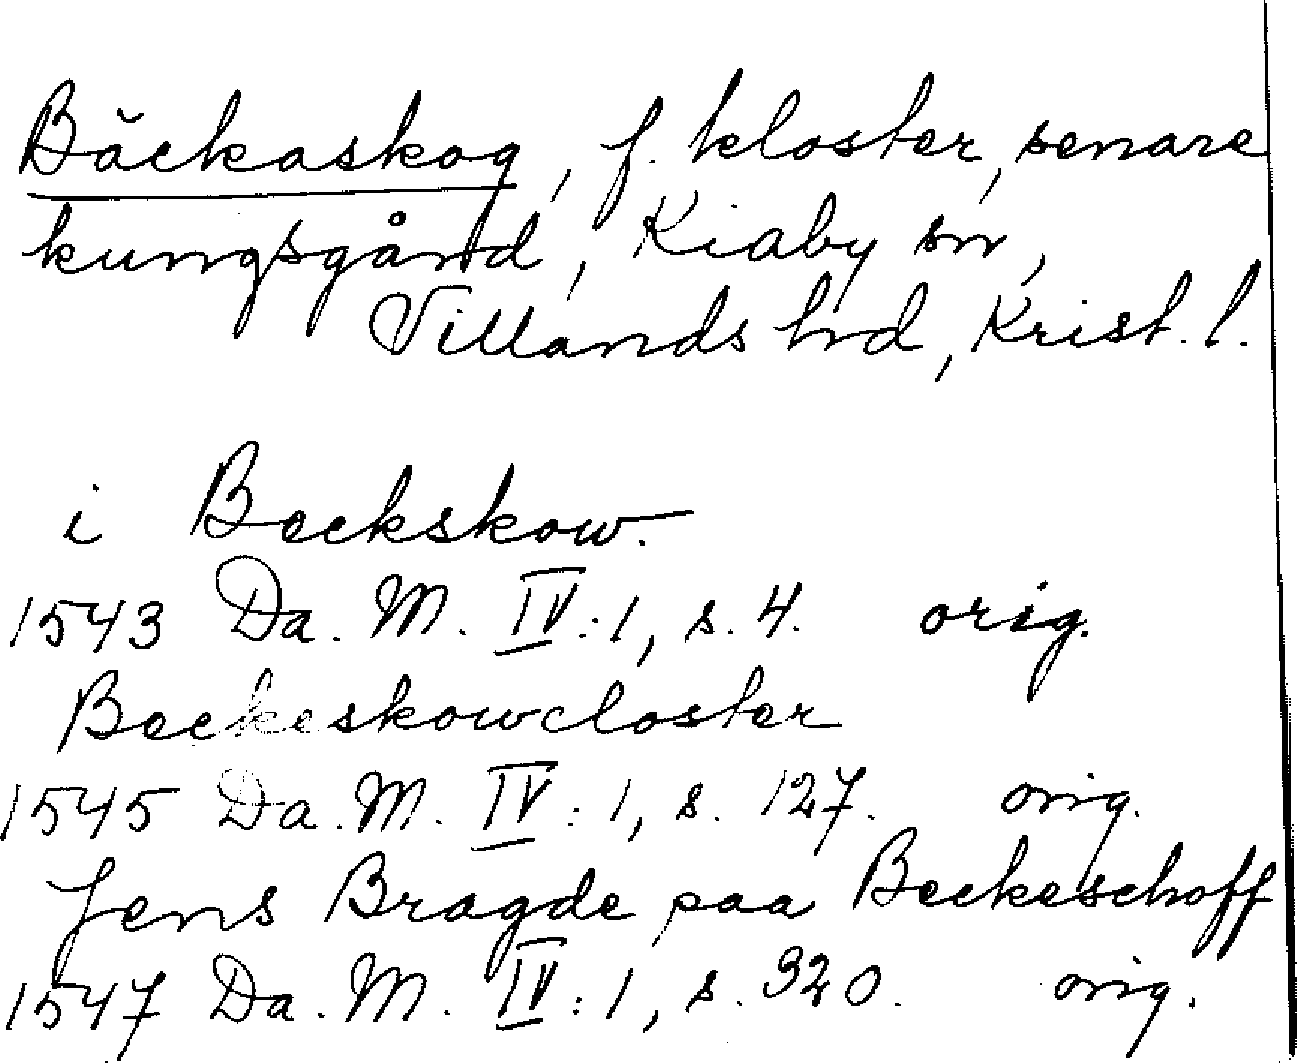 Bäckaskog, f. kloster, senare
kungsgård, Kiaby sn,
Villands hrd, Krist. l.
i Beckskow.
1543 Da. M. IV:1, s. 4. orig.
Beckeskowcloster
1545 Da. M. IV:1, s. 127. orig.
Jens Bragde paa Beckeschoff
1547 Da. M. IV:1, s. 320. orig.